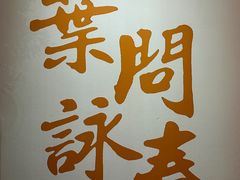 葉問
詠春